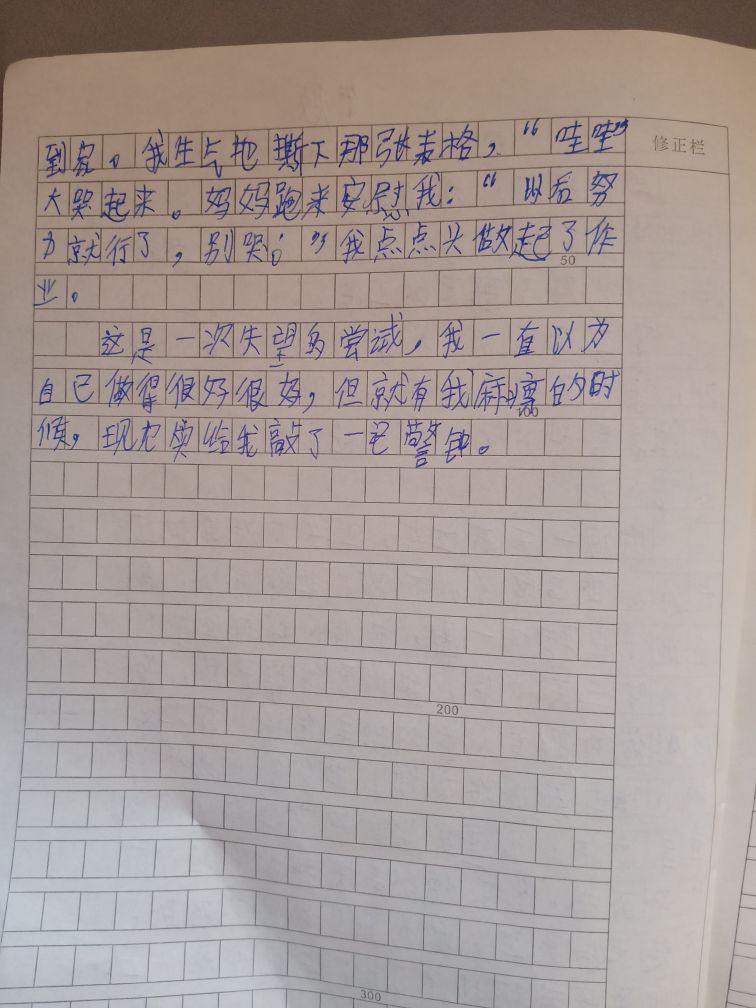 到家。我生气地撕下那张表格，“哇哇”
修正栏
大哭起来。妈妈跑来安慰我：“以后努
力就行了，别哭；”我点点头做起了作
50
业。
这是一次失望的尝试，我一直以为
自己做得很好很好，但就有我麻痹的时
100
候，现实给我敲了一记警钟。
200
300